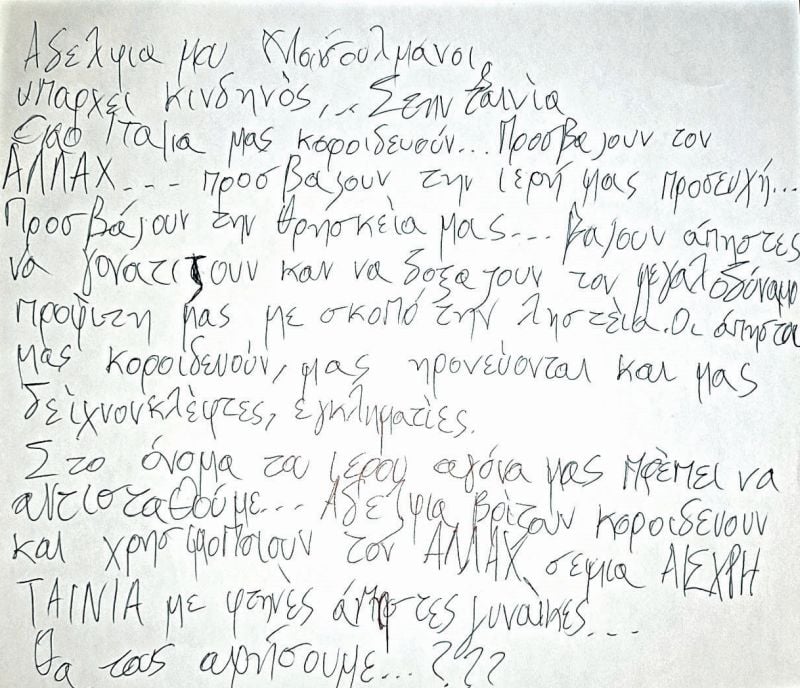 Αδελφια μου Μουσουλμάνοι,
υπαρχει κινδηνὸς,.. Στην ταινὶα
Cιαο Ιταλια μας κοροιδευούν... Προσβαζουν τον
ΑΛΛΑΧ... προσβαζουν την ιερή μας προσευχή...
Προσβάζουν την θρησκεὶα μας... βαζουν άπηστες
να γονατιζουν και να δοξαζουν τον μεγαλοδύναμο
προφιτη μας με σκοπό την ληστεὶα. Οι άπηστοι
μας κοροιδευούν, μας ηρονεὺονται και μας
δεὶχνουν κλὲφτες, εγκλημματὶες.
Στο όνομα του ιερου αγόνα μας πρὲπει να
αντισταθούμε... Αδελφια βρὶζουν κοροιδευουν
και χρησιμοποιουν τον ΑΛΛΑΧ σε μια ΑΙΣΧΡΗ
ΤΑΙΝΙΑ με φτηνὲς άπηστες γυναὶκες...
Θα τους αφήσουμε...???